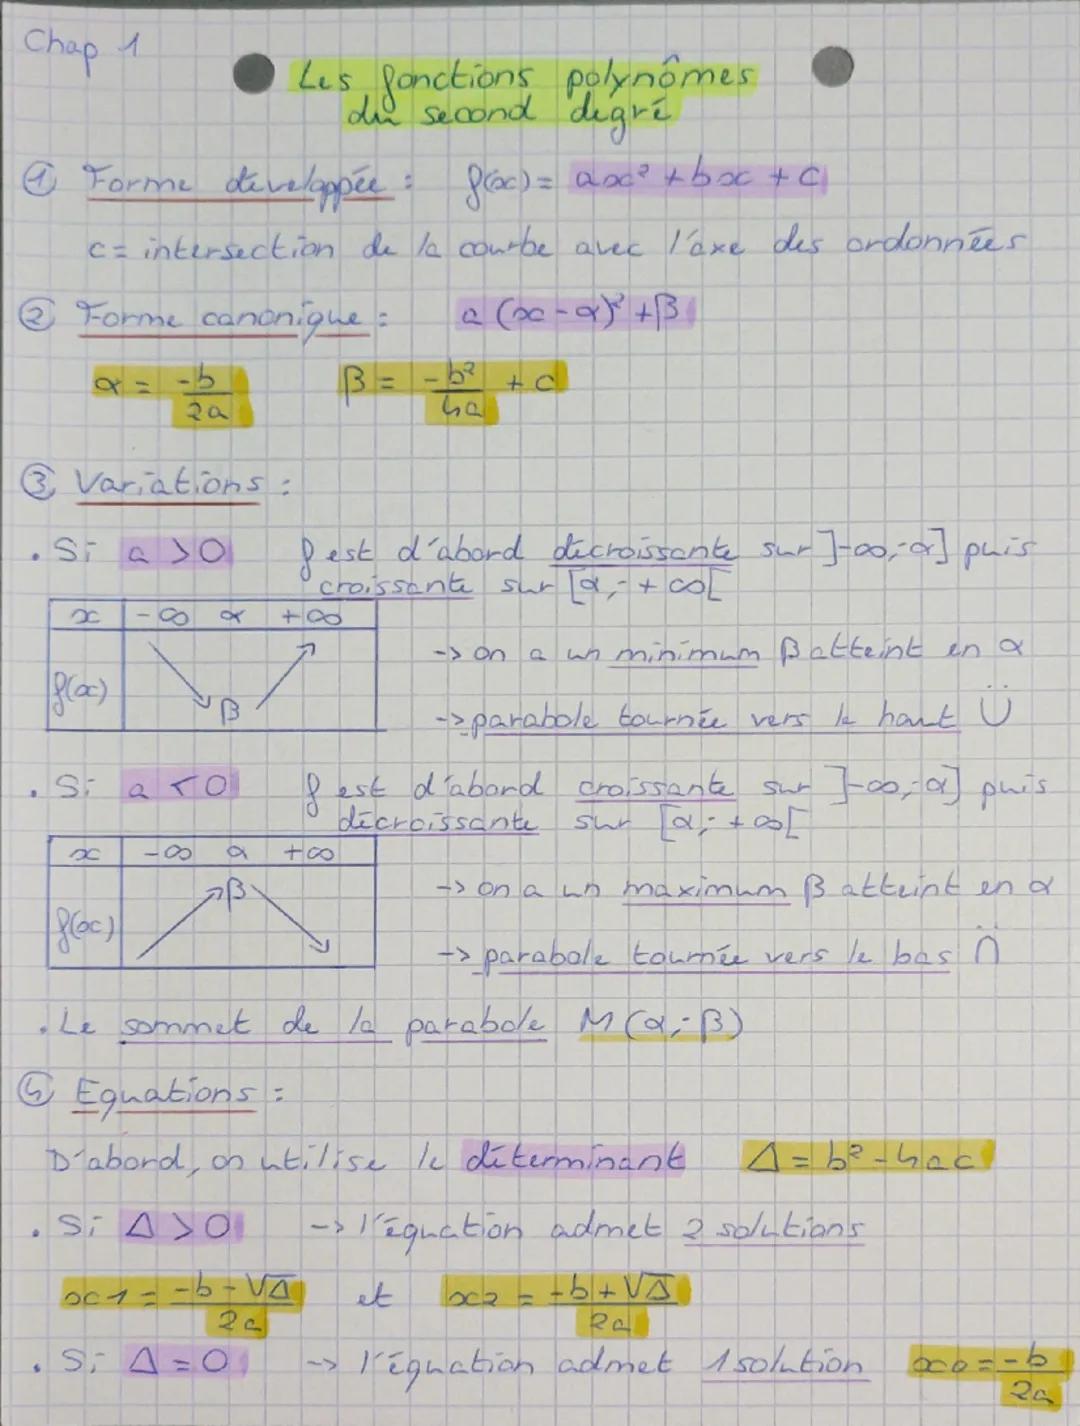 Chap 1
Les fonctions polynômes
du second degré
① Forme développée : f(x) = ax² + bx + c
c = intersection de la courbe avec l'axe des ordonnées
② Forme canonique : a (x - α)² + β
α = -b/2a β = -b²/4a + c
③ Variations :
. Si a > 0 f est d'abord décroissante sur ]-∞; α] puis
croissante sur [α; +∞[
x -∞ α +∞
-> on a un minimum β atteint en α
f(x) β
-> parabole tournée vers le haut Ü
. Si a < 0 f est d'abord croissante sur ]-∞; α] puis
décroissante sur [α; +∞[
x -∞ α +∞
β -> on a un maximum β atteint en α
f(x)
-> parabole tournée vers le bas ∩̈
. Le sommet de la parabole M (α; β)
④ Equations :
D'abord, on utilise le déterminant Δ = b² - 4ac
. Si Δ > 0 -> l'équation admet 2 solutions
x1 = -b - √Δ/2a et x2 = -b + √Δ/2a
. Si Δ = 0 -> l'équation admet 1 solution x0 = -b/2a